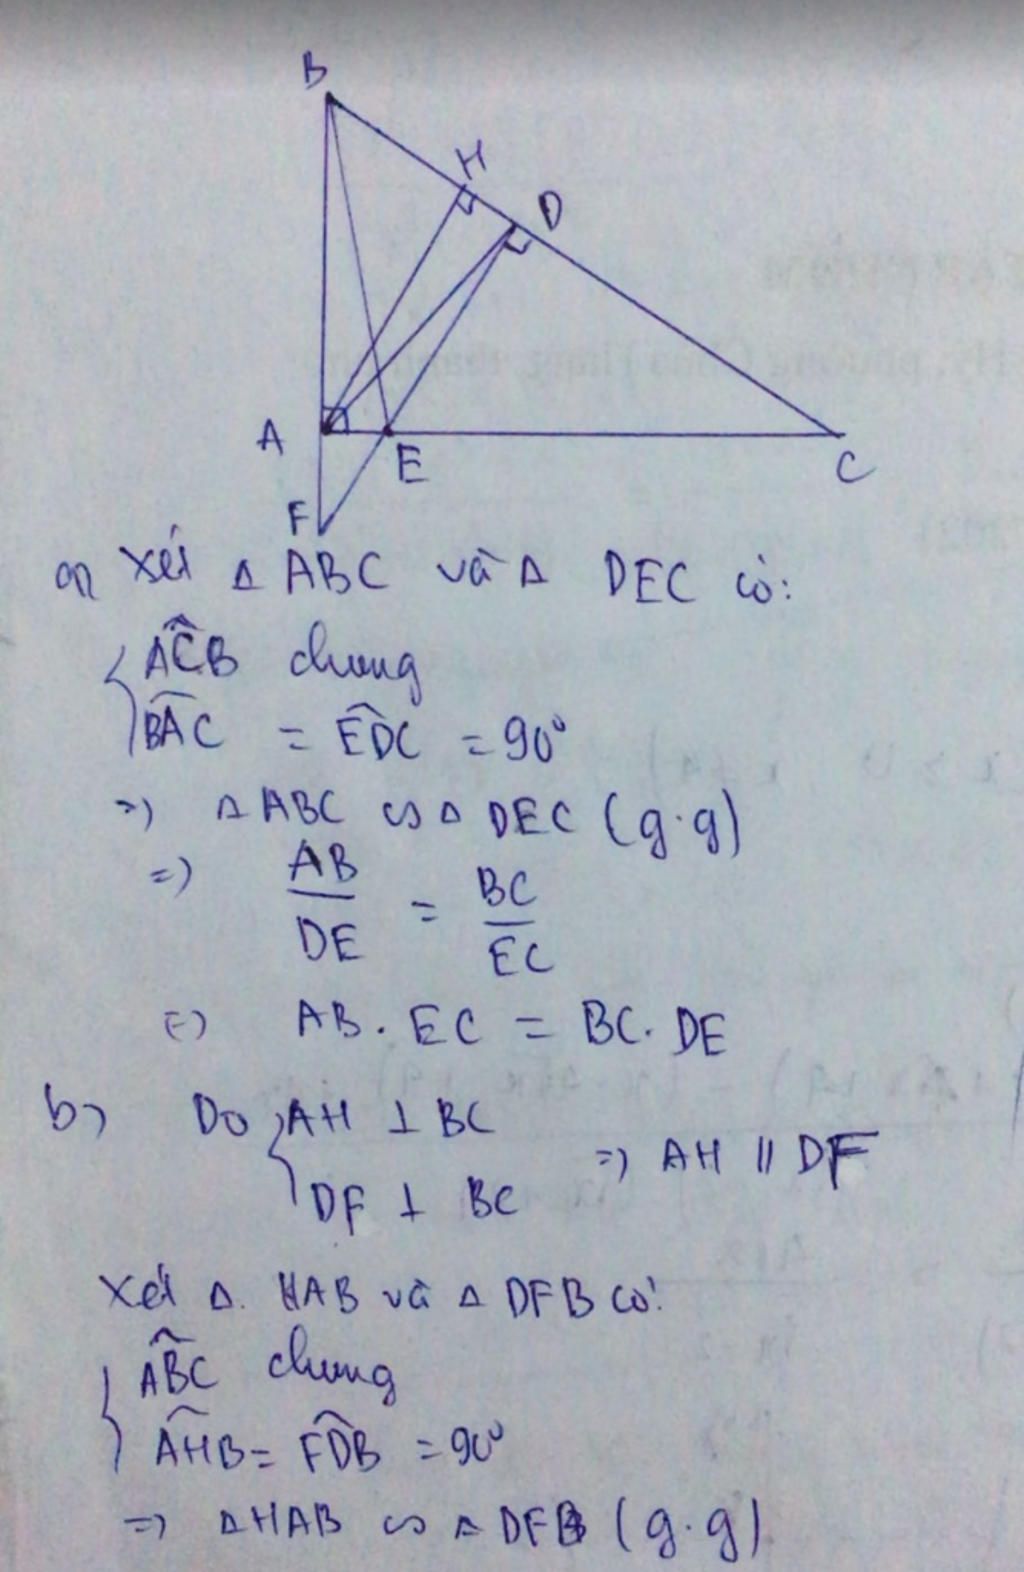 B
H
D
A
E
C
F
a) Xét Δ ABC và Δ DEC có:
{ ACB̂ chung
BAĈ = EDĈ = 90°
=> Δ ABC ∽ Δ DEC (g.g)
=> AB/DE = BC/EC
(=) AB . EC = BC . DE
b) Do { AH ⊥ BC
DF ⊥ BC => AH // DF
Xét Δ. HAB và Δ DFB có:
{ ABĈ chung
AHB̂ = FDB̂ = 90°
=> Δ HAB ∽ Δ DFB (g.g)